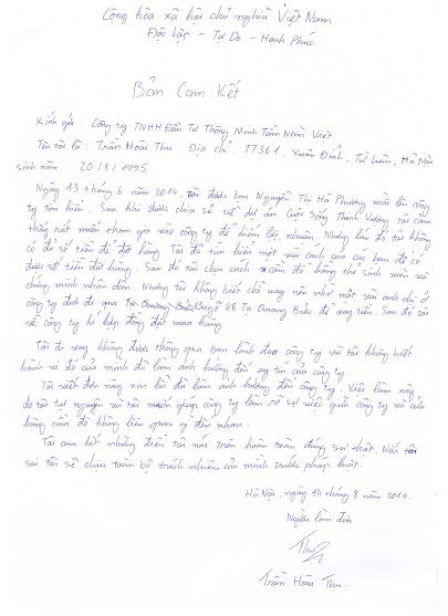 Cộng hòa xã hội chủ nghĩa Việt Nam
Độc lập - Tự Do - Hạnh Phúc
Bản Cam Kết
Kính gửi: Công ty TNHH Đầu Tư Thông Minh Tầm Nhìn Việt
Tên tôi là: Trần Hoài Thu Địa chỉ: TT361. Xuân Đỉnh, Từ Liêm, Hà Nội
sinh năm 20/8/1995
Ngày 13 tháng 6 năm 2014, tôi được bạn Nguyễn Thị Hà Phương mời lên công
ty tìm hiểu. Sau khi được chia sẻ về dự án Cuộc Sống Thịnh Vượng tôi cảm
thấy rất muốn tham gia vào công ty để kiếm lợi nhuận. Nhưng lúc đó tôi không
có đủ số tiền để đặt hàng. Tôi đã tìm kiếm một cách để có
được số tiền đó hàng. Sau đó tôi chọn cách cầm đồ bằng thẻ sinh viên và
chứng minh nhân dân. Nhưng tôi không biết chỗ vay nên nhờ một anh chị ở
công ty đưa đi qua ngõ 48 Tạ Quang Bửu để vay tiền. Sau đó tôi
về công ty kí hợp đồng đặt mua hàng
Tôi đi vay không được thông qua ban lãnh đạo công ty và tôi không biết
hành vi đó của mình đã làm ảnh hưởng đến uy tín của công ty.
Tôi viết đơn này xin lỗi đã làm ảnh hưởng đến công ty. Việc làm này
do tôi tự nguyện và tôi muốn giúp công ty làm rõ sự việc giữa công ty và cửa
hàng cầm đồ không liên quan gì đến nhau.
Tôi cam kết những điều tôi nói trên hoàn toàn đúng sự thật. Nếu
sai tôi sẽ chịu toàn bộ trách nhiệm của mình trước pháp luật.
Hà Nội, ngày 14 tháng 8 năm 2014.
Người làm đơn
Thu
Trần Hoài Thu.